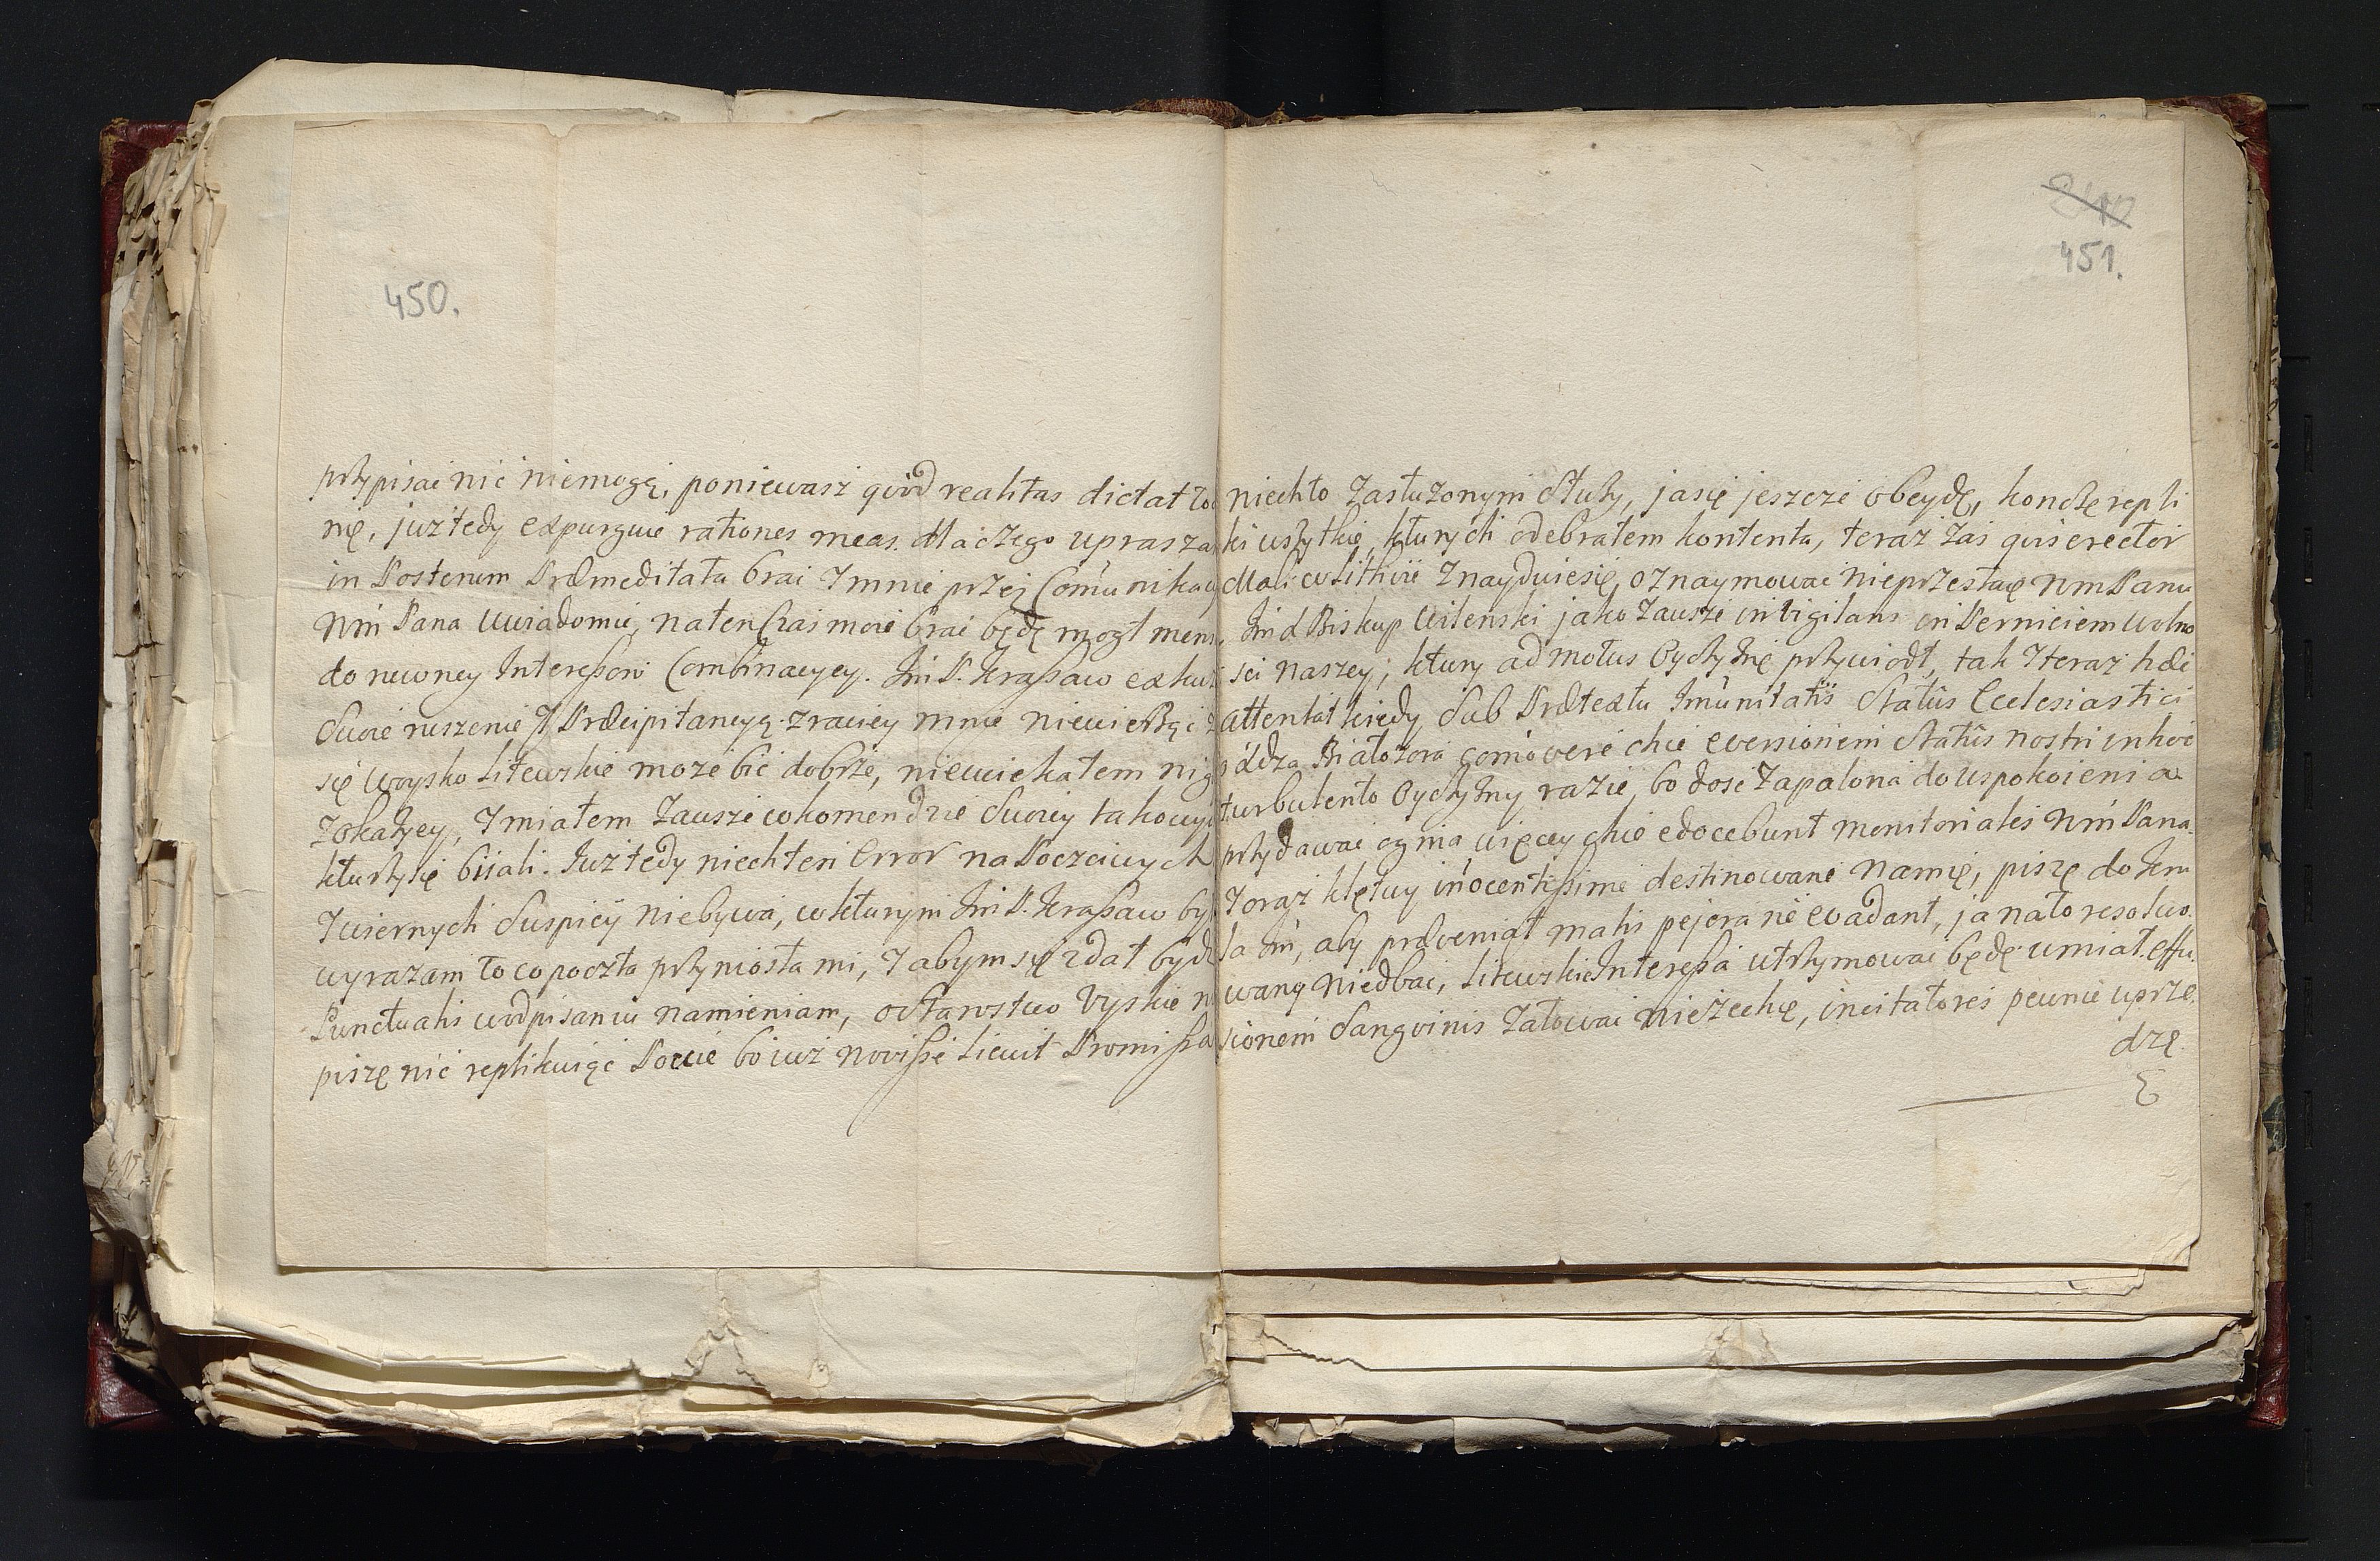 450.
przypisać nic niemogę, poniewasz qvod realitas dictat
nię, juz tedy expurgue rationes meas. dlaczego uprasza
in Posterum Præmeditata brać I mnie przez Comunikacy
Wm̃ Pana uwiadomić, naten Czas moie brać będę mogł
do newney Interessow Combinacyey. Jm̃ P. Krassaw
Swoie ruszenie I Præcipitancyą zraciey mnie niewierząc
się woysko Litewskie może bić dobrze, nieuciekałem nig
Zokazyey, I miałem Zausze w komendzie Swoiey takowych
kturzy się biiali. Iuz tedy niech ten Error na Poczciwych
I wiernych Suspicÿ niebywa, w kturym Jm̃ P. Krassaw
wyrazam to co poczta przyniosła mi, I abym się zdał
Punctualis w odpisaniu namieniam, o Starostwo Uyskie
piszę nic replikuiąc Powie bo iuż novisse Licuit Promissa
2412
451.
niech to zasłużonym służy, ja się jeszcze obeydę, konczę repli
ki uszytkie, kturych odebrałem kontenta, teraz zaś qvis erector
Mali w Lithvie Znayduie się, oznaymować nieprzestaię Wm Panu
Jm̃ d Biskup Wilenski jako Zausze invigilans in Perniciem wolno
sci naszey, ktury ad motus Oyczyznę przywiodł, tak I teraz
attentat kiedy Sub Prætextu Im̃unitatis Status Ecclesiastici
Białozora com̃overe chce eversionem Status nostri in hoc
turbulento Oyczyzny razie, bo dosc Zapalona do uspokoienia
przydawać ognia więcey chce edocebunt monitoriales Wm̃ Pana.
I oraz klętwy in̄ocentissime destinowane na mię, piszę do
la Jm̃, aby præveniat malis pejora ne evadant, ja na to resolwo.
wany niedbać, Litewskie Interessa utrzymować będę umiał. effu.
sionem Sangvinis Załować nie zechę, incitatores pewnie uprze.
dzę.